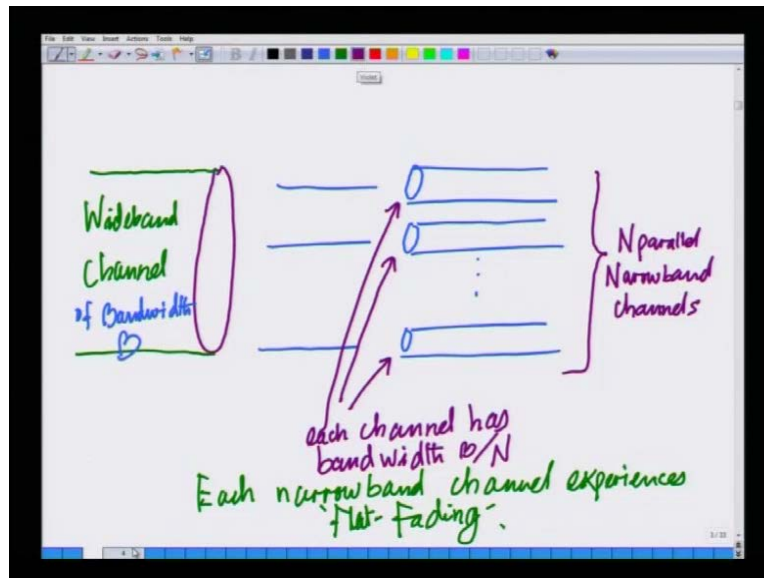 File Edit View Insert Actions Tools Help
Violet
Wideband
Channel
of Bandwidth
B
N parallel
Narrowband
channels
each channel has
bandwidth B/N
Each narrowband channel experiences
'Flat-Fading'.
3/33